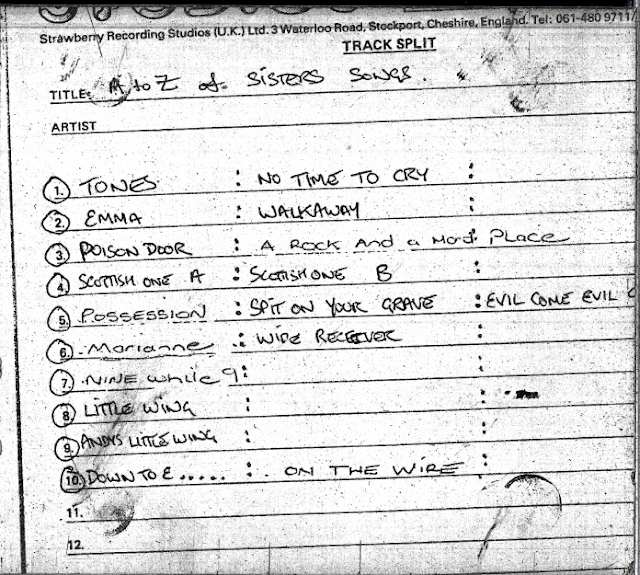 Strawberry Recording Studios (U.K.) Ltd. 3 Waterloo Road, Stockport, Cheshire, England. Tel: 061-480 9711/
TRACK SPLIT
TITLE: A to Z of SISTERS SONGS.
ARTIST
1. TONES : NO TIME TO CRY :
2. EMMA : WALKAWAY
3. POISON DOOR : A ROCK AND a HARD : PLACE
4. SCOTTISH ONE A : SCOTTISH ONE B :
5. POSSESSION : SPIT ON YOUR GRAVE : EVIL COME EVIL
6. Marianne : WIDE RECEIVER :
7. NINE while 9 : :
8. LITTLE WING : :
9. ANDYS LITTLE WING : :
10. DOWN TO E ..... : ON THE WIRE :
11.
12.